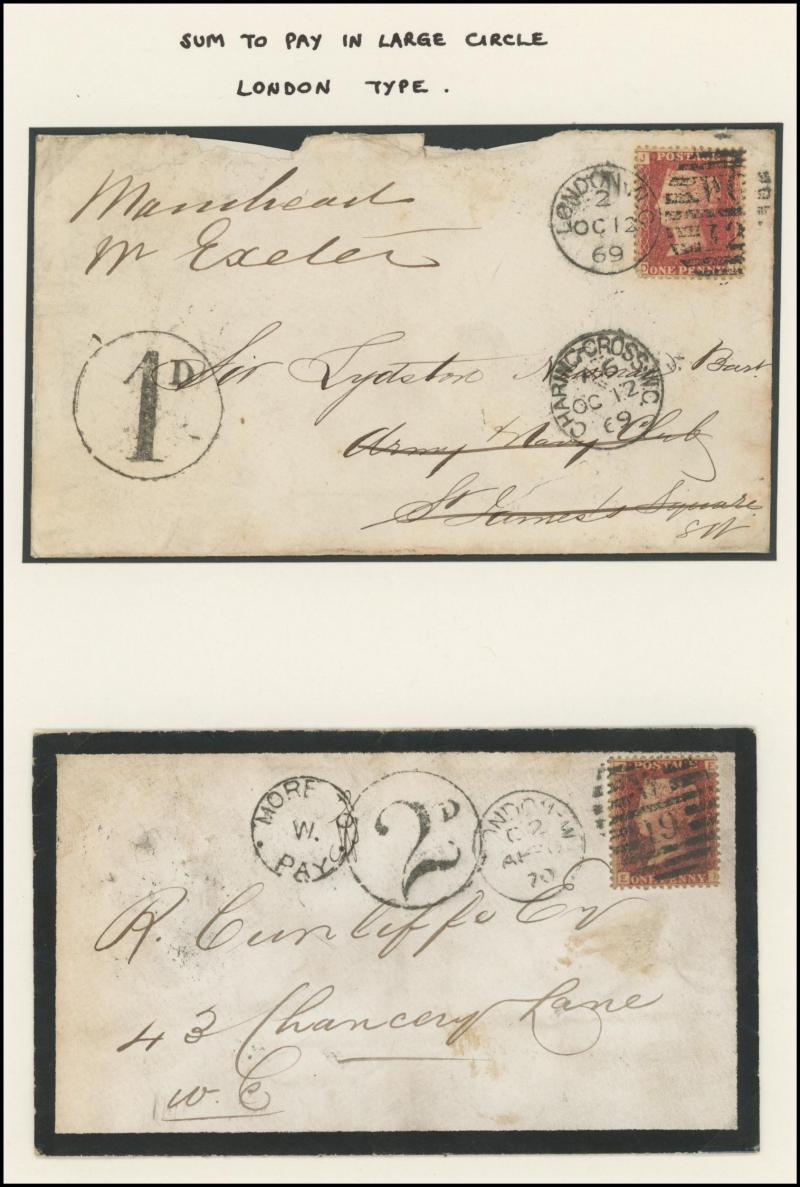 SUM TO PAY IN LARGE CIRCLE
LONDON TYPE.
Mamhead
Nr Exeter
LONDON
2
OC 12
69
J
POSTAGE
D ONE PENNY
1D
Sir Lydston Bart
CHARING-CROSS.W.C.
OC 12
69
Army & Navy Club
St James's Square
SW
MORE
W.
PAY
2D
LONDON.W
C 2
AP
70
POSTAGE E
19
E ONE PENNY
R. Cunliffe
43 Chancery Lane
W.C